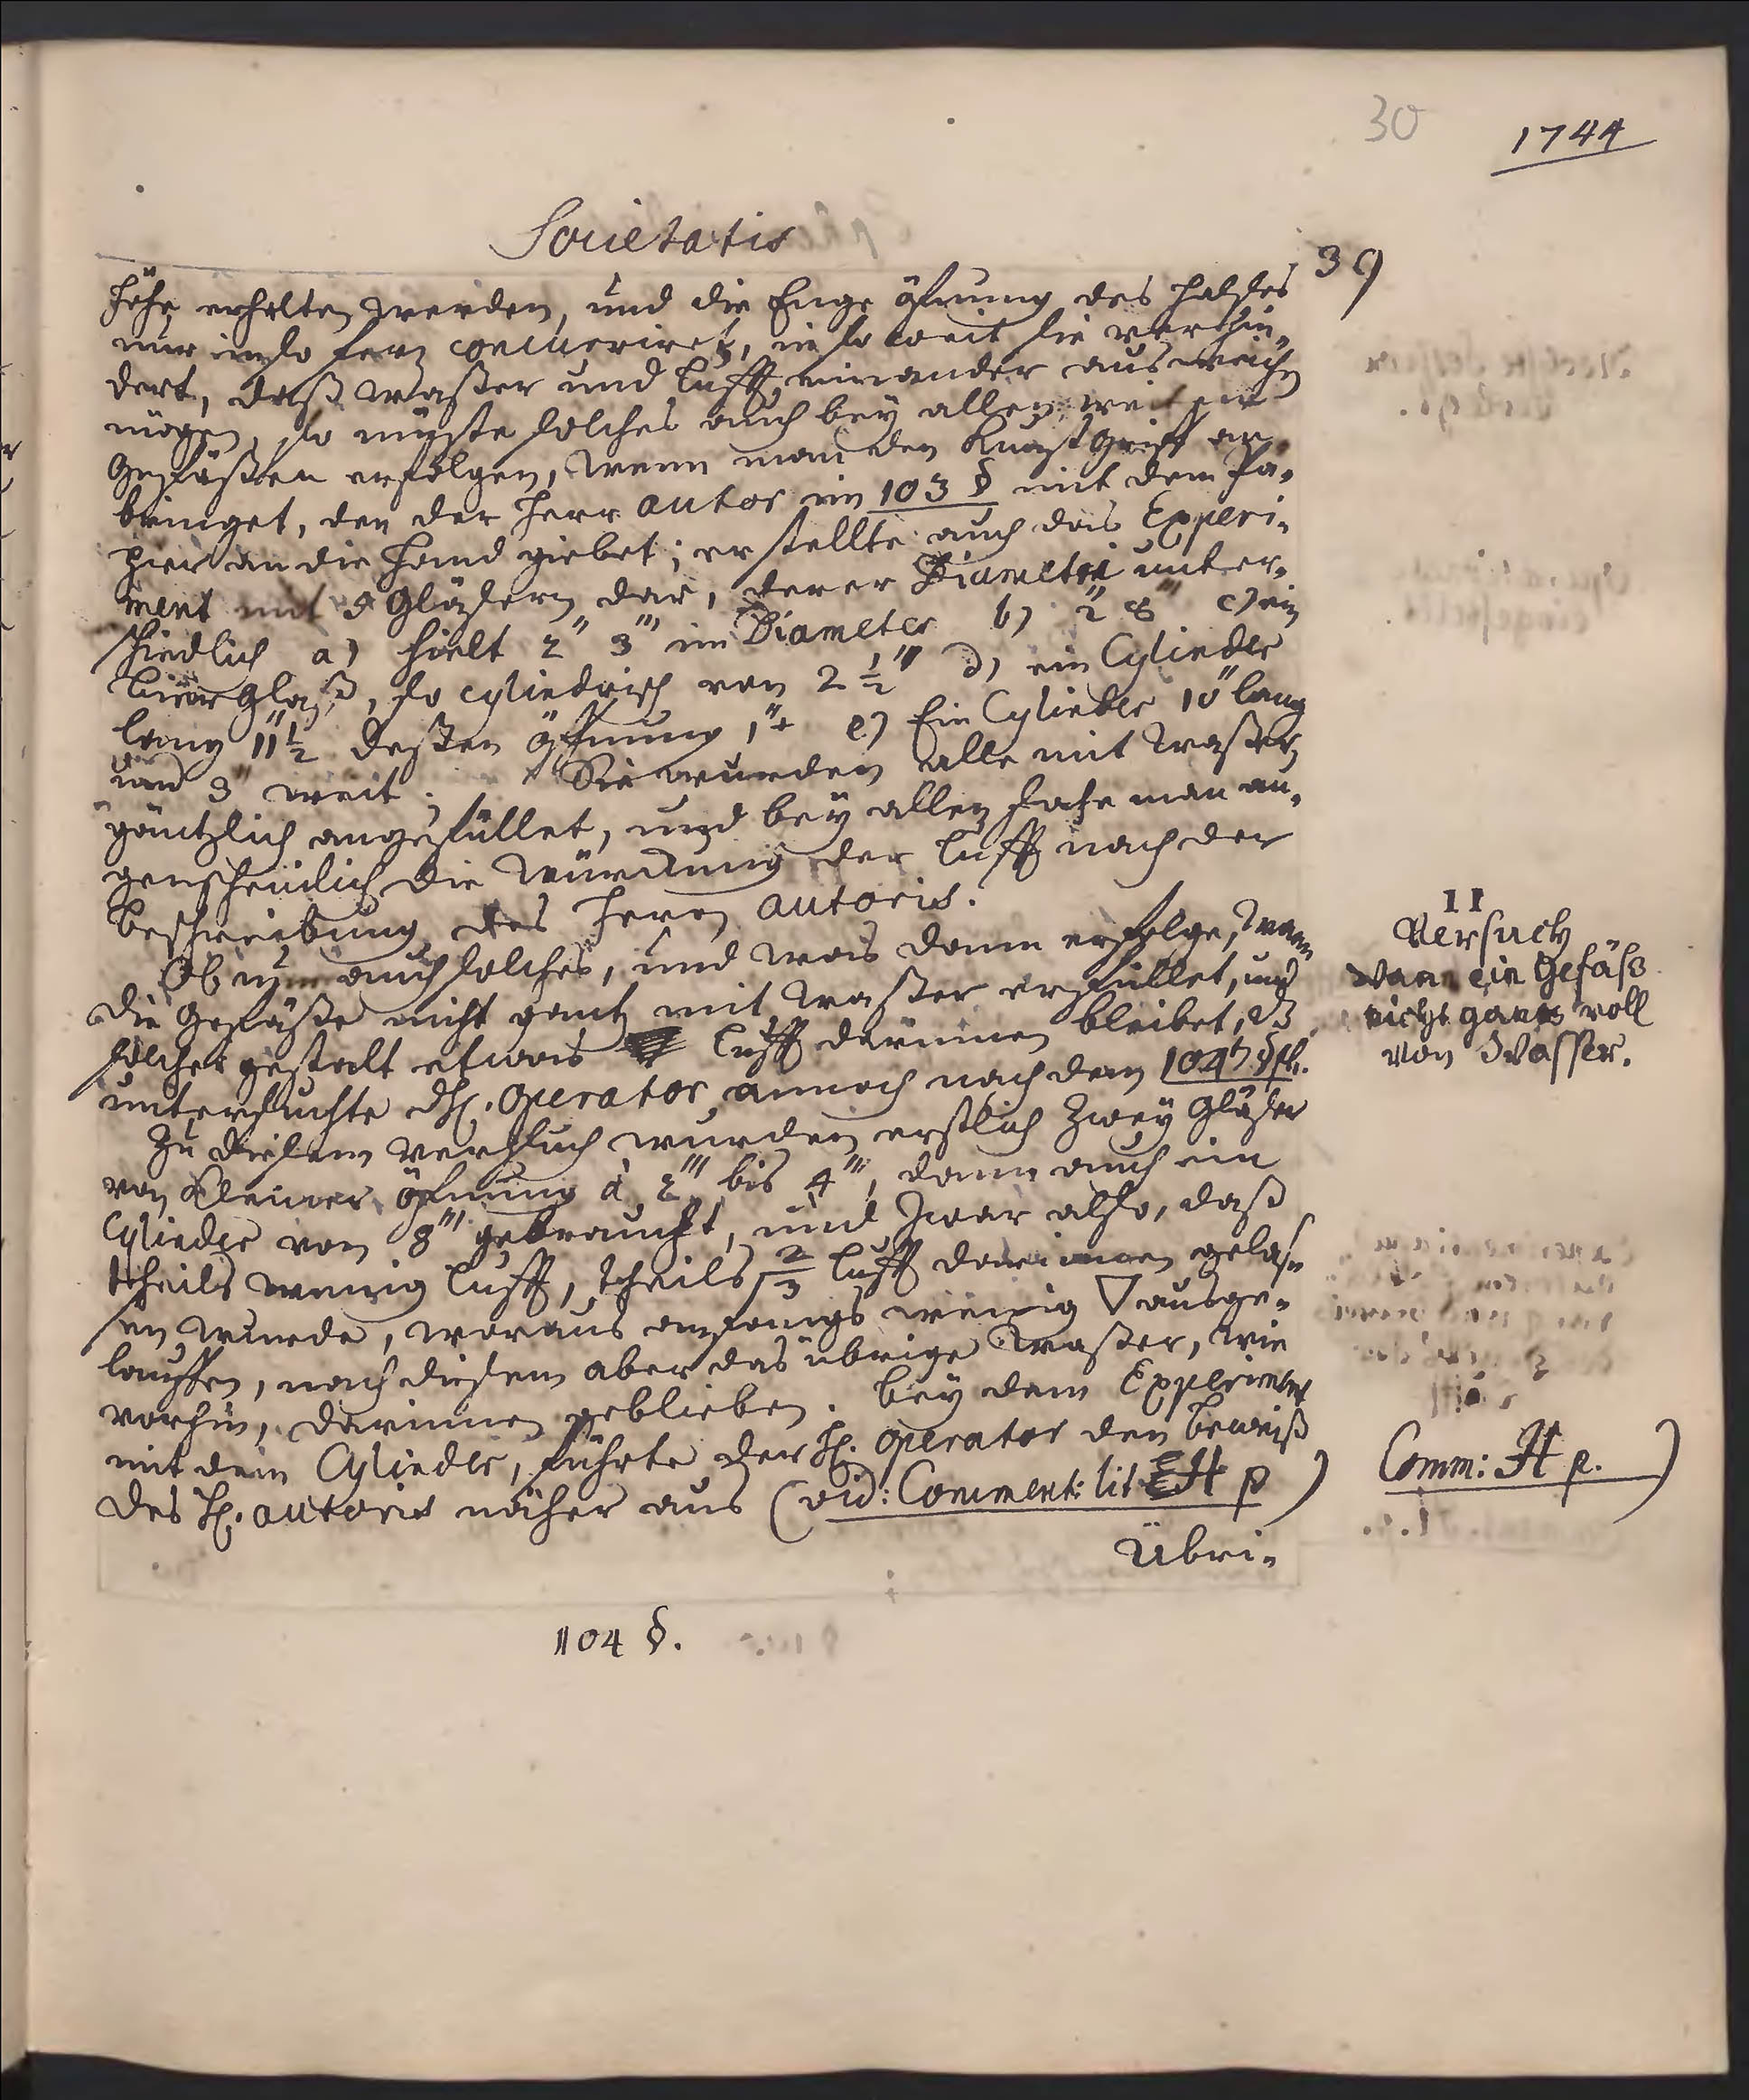 30
1744
Societatis
39
Höhe erhalten werden, und die Enge öfnung des Halßes
nur in so fern concurriret, in so weit sie verhin-
dert, daß waßer und Lufft einander ausweichen
mögen, so müste solches auch bey allen weiten
Gefäßen erfolgen, wenn man den Kunstgriff an-
bringet, den der Herr autor im 103 § mit dem Pa-
pier an die Hand giebet; er stellte auch das Experi-
ment mit 5 Gläßern dar, derer Diametri unter-
schiedlich a) hielt 2" 3''' im Diameter b) 2" 8''' c) ein
Bier Glaß, so cylindrisch von 2 1/2''' d) ein Cylinder
lang 11" 1/2 deßen öffnung 1"+ e) Ein Cylinder 10" lang
und 3" weit. Sie wurden alle mit Waßer
gäntzlich angefüllet, und bey allen sahe man au-
genscheinlich die Würckung der Lufft nach der
Beschreibung des Herrn autoris.
Ob nun auch solches, und was dann erfolge, Wann
die Gefäße nicht gantz mit Waßer erfüllet, und
solcher gestalt etwas Lufft darinnen bleibet,
untersuchte H. Operator annoch nach dem 104 §ph.
Zu diesem Versuch wurden erstlich Zwey Gläßer
von kleiner öfnung à 2''' bis 4''', dann auch ein
Cylinder von 8''' gebraucht, und zwar also, daß
theils wenig Lufft, theils 2/3 Lufft darinnen gelaß-
en wurde, woraus anfangs wenig ▽ ausge-
lauffen, nach diesem aber das übrige Waßer, wie
vorhin, darinnen geblieben. Bey dem Experiment
mit dem Cylinder, führte der H. Operator den Beweiß
des H. autoris näher aus (vid: Comment: lit H p )
Übri-
11
Versuch
Wan ein Gefäß
nicht gantz voll
von Wasser.
Comm: H p. )
104 §.